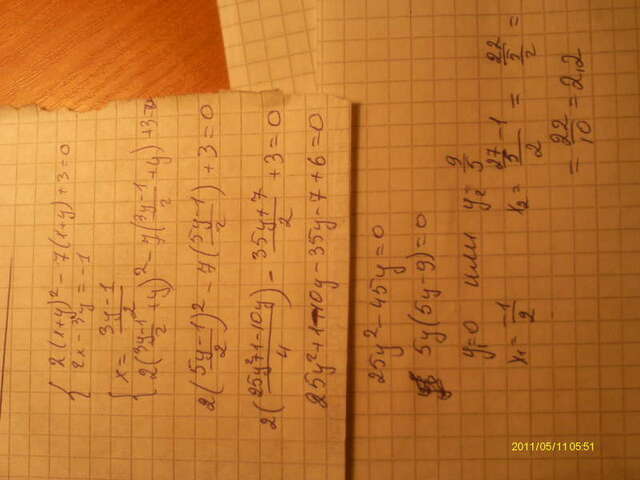 { 2(1+y)² - 7(1+y) + 3 = 0
2x - 3y = -1
{ x = (3y-1)/2
2((3y-1)/2 + y)² - 7((3y-1)/2 + y) + 3 = 0
2((5y-1)/2)² - 7((5y-1)/2) + 3 = 0
2((25y²+1-10y)/4) - (35y+7)/2 + 3 = 0
25y² + 1 - 10y - 35y - 7 + 6 = 0
25y² - 45y = 0
5y(5y-9) = 0
y₁ = 0 или y₂ = 9/5
x₁ = -1/2 x₂ = (27/5 - 1)/2 = (22/5)/2 =
= 22/10 = 2,2
2011/05/11 05:51